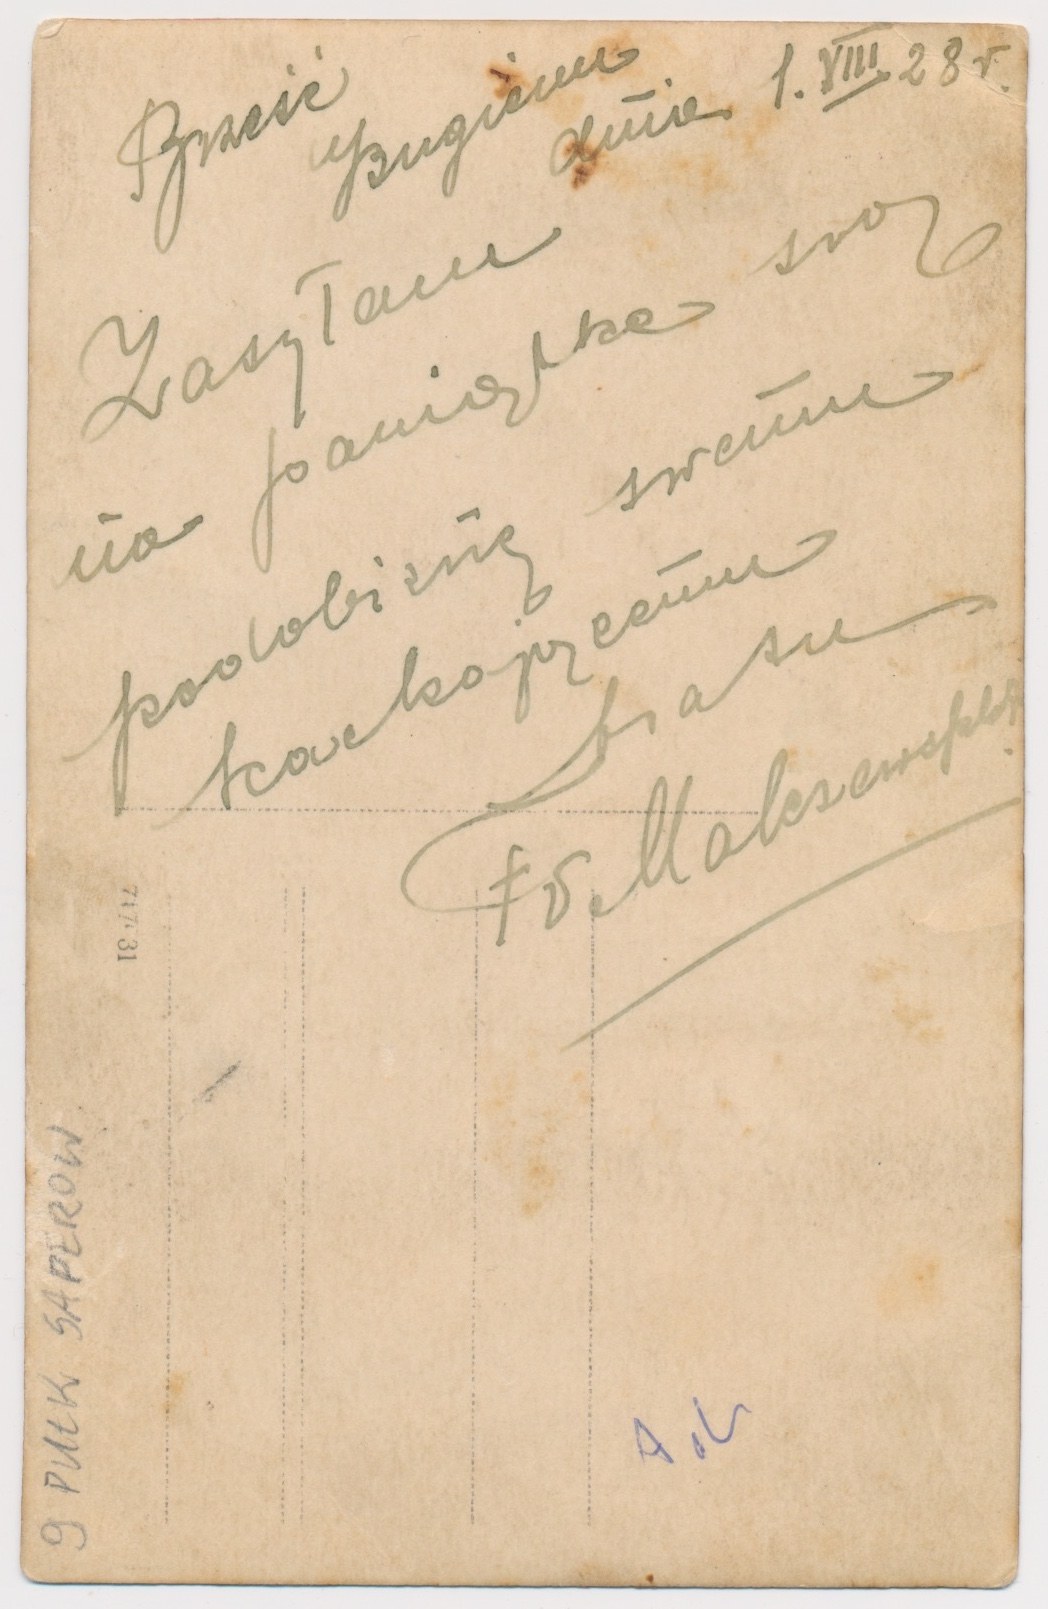 Brześć n/Bugiem dnia 1. VIII 28 r.
Zasyłam swą
na pamiątkę
podobiznę swemu
kochającemu
bratu
Fr. Malczewski
71731
9 PUŁK SAPEROW